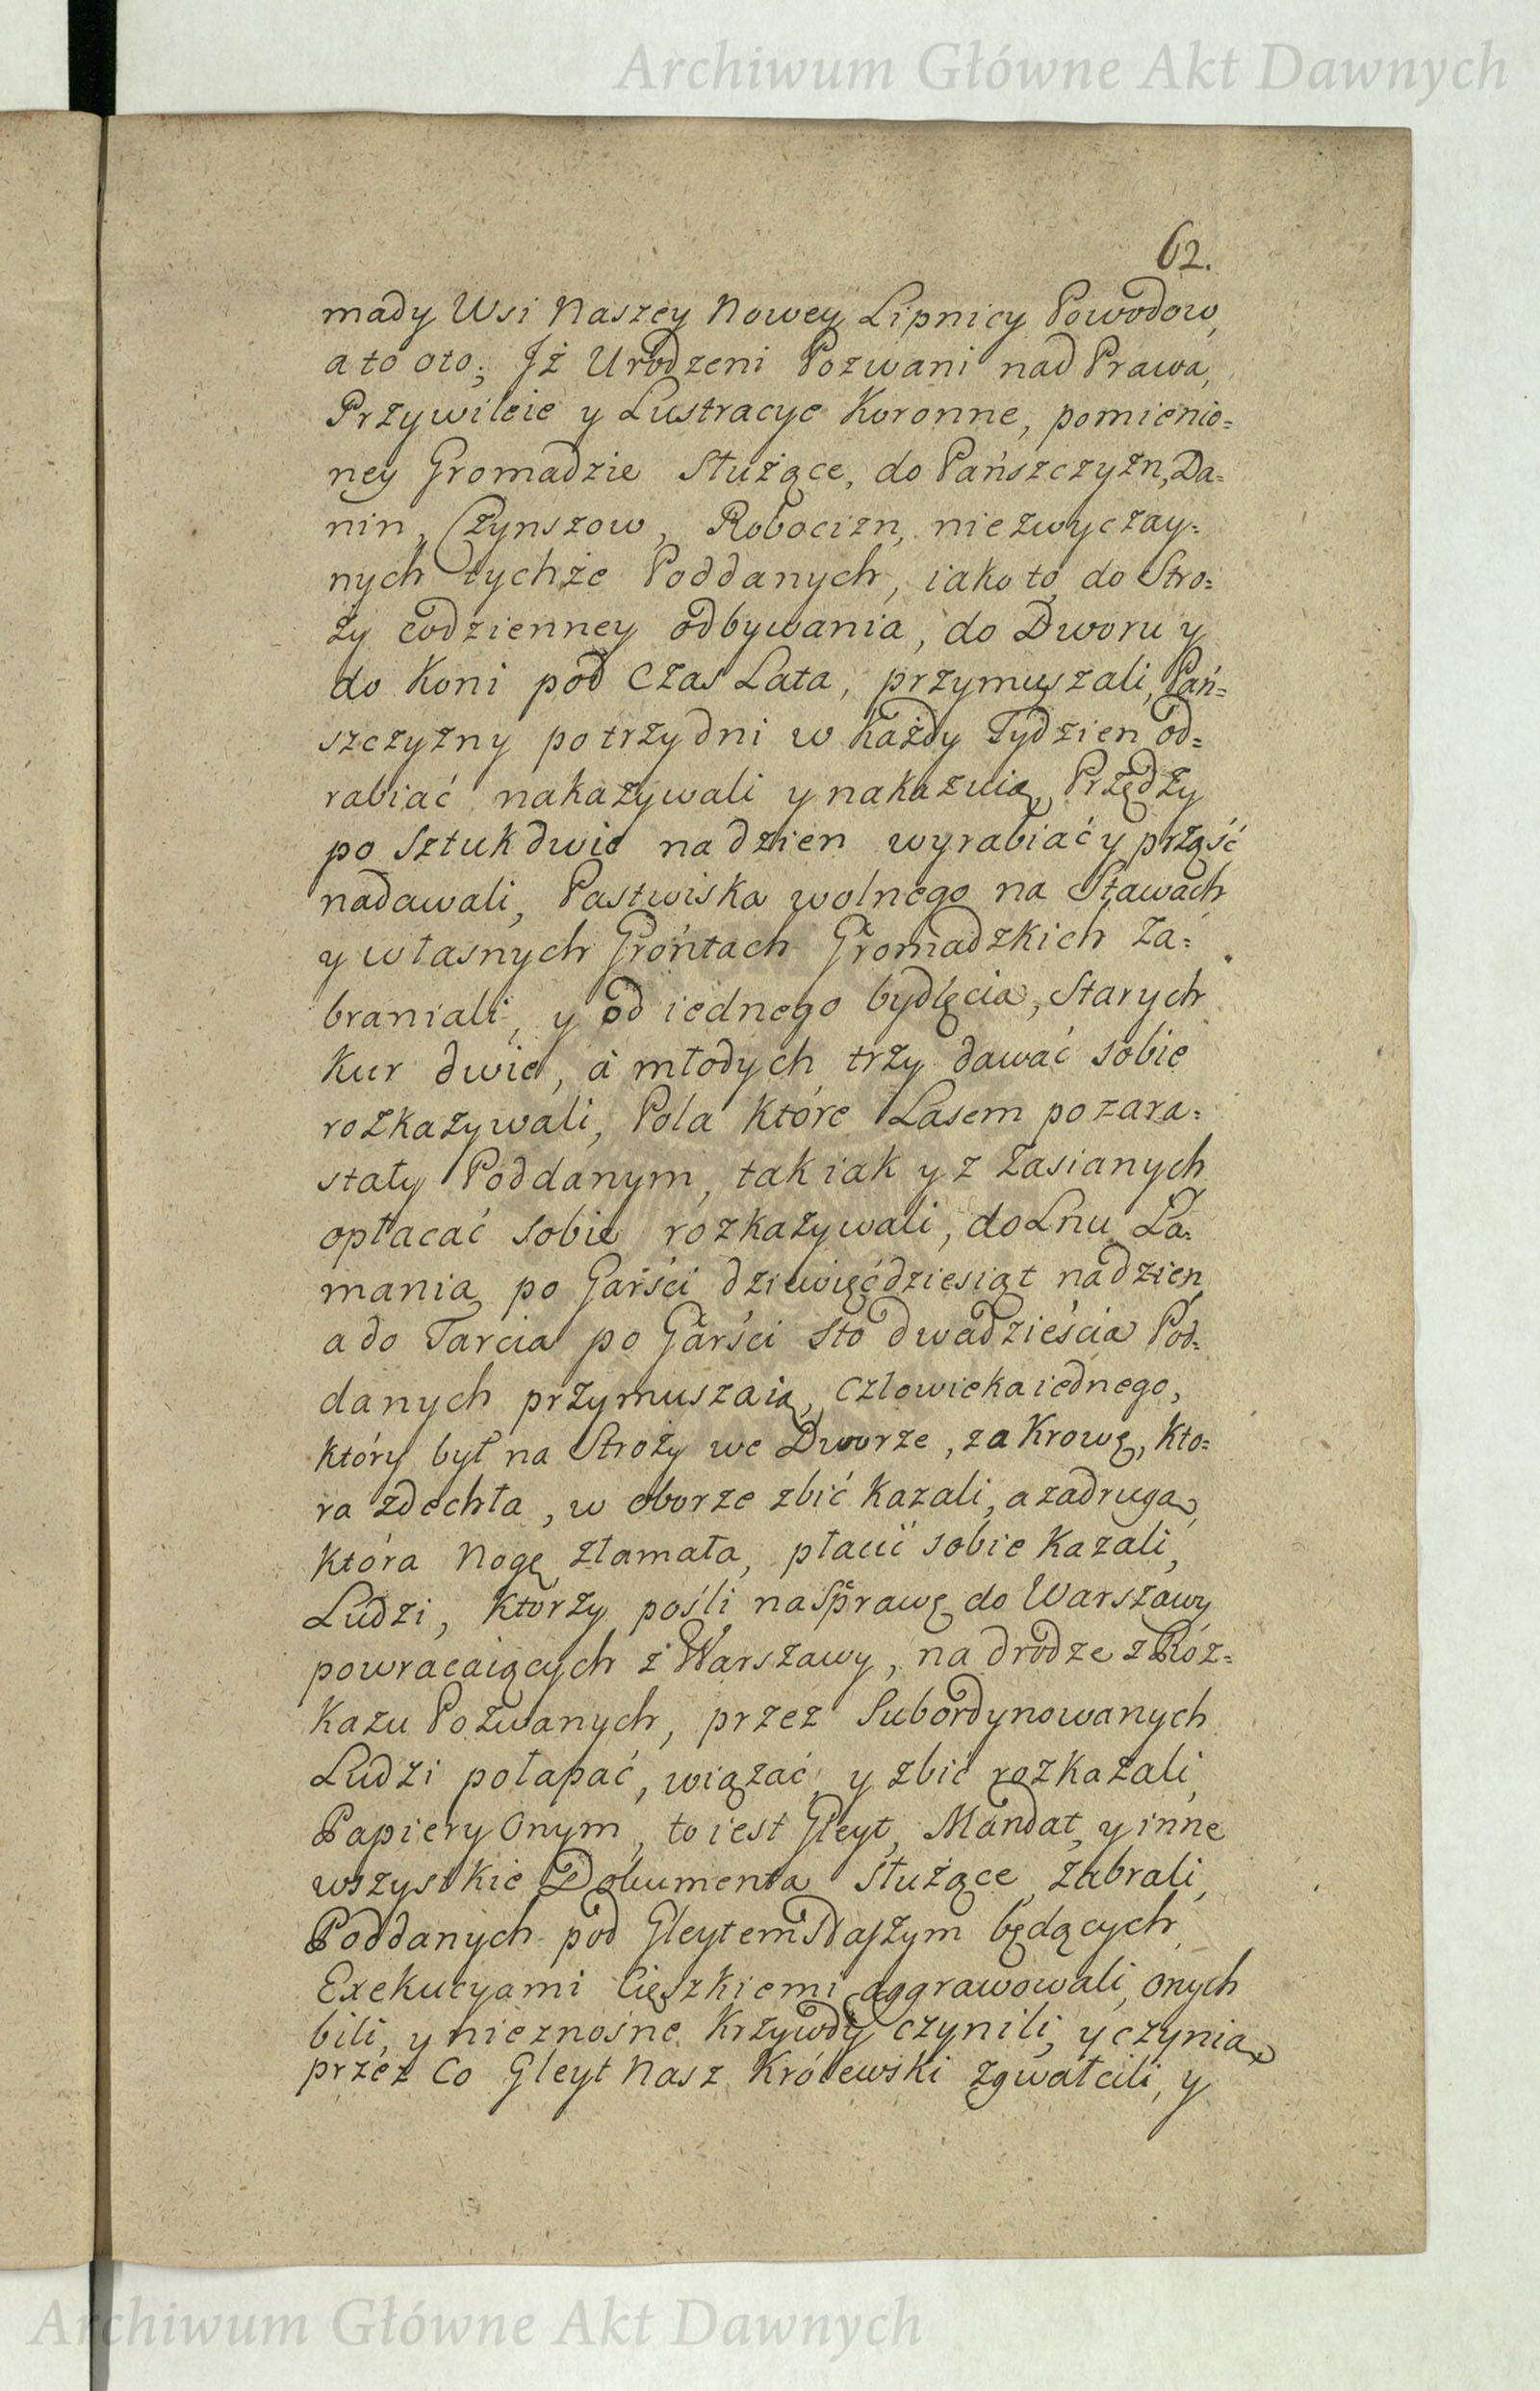 Archiwum Główne Akt Dawnych
62.
mady Wsi Naszey Nowey Lipnicy Powodow,
a to oto; Iż Urodzeni Pozwani nad Prawa,
Przywileie y Lustracye Koronne, pomienio=
ney Gromadzie Służące, do Pańszczyzn, Da=
nin, Czynszow, Robocizn, niezwyczay=
nych tychże Poddanych, iako to, do Stro=
ży codzienney odbywania, do Dworu y
do Koni pod Czas Lata, przymuszali, Pań=
szczyzny po trzy dni w Każdy Tydzien od=
rabiać nakazywali y nakazuią, Przędzy
po Sztuk dwie na dzien wyrabiać y prząść
nadawali, Pastwiska wolnego na Stawach
y własnych Gróntach Gromadzkich za=
braniali, y od iednego bydlęcia, Starych
Kur dwie, a młodych trzy dawać sobie
rozkazywali, Pola Które Lasem pozara=
stały Poddanym, tak iak y z Zasianych
opłacać sobie rozkazywali, do Lnu Ła=
mania po Garści dziewięćdziesiąt na dzien
a do Tarcia po Garści Sto dwadzieścia Pod=
danych przymuszaią, Człowieka iednego,
który był na Stroży we Dworze, za Krowę, Kto=
ra zdechła, w oborze zbić Kazali, a za drugą,
która Nogę złamała, płacić sobie Kazali,
Ludzi, Ktorzy pośli na Sprawę do Warszawy
powracaiących z Warszawy, na drodze z Roz=
Kazu Pozwanych, przez Subordynowanych
Ludzi połapać, wiązać, y zbić rozkazali,
Papiery Onym, to iest Gleyt, Mandat, y inne
wszystkie Dokumenta Służące zabrali,
Poddanych pod Gleytem Naszym będących
Exekucyami Cięszkiemi aggrawowali, onych
bili, y nieznośne Krzywdy czynili, y czynią
przez Co Gleyt Nasz Królewski zgwałcili, y
Archiwum Główne Akt Dawnych